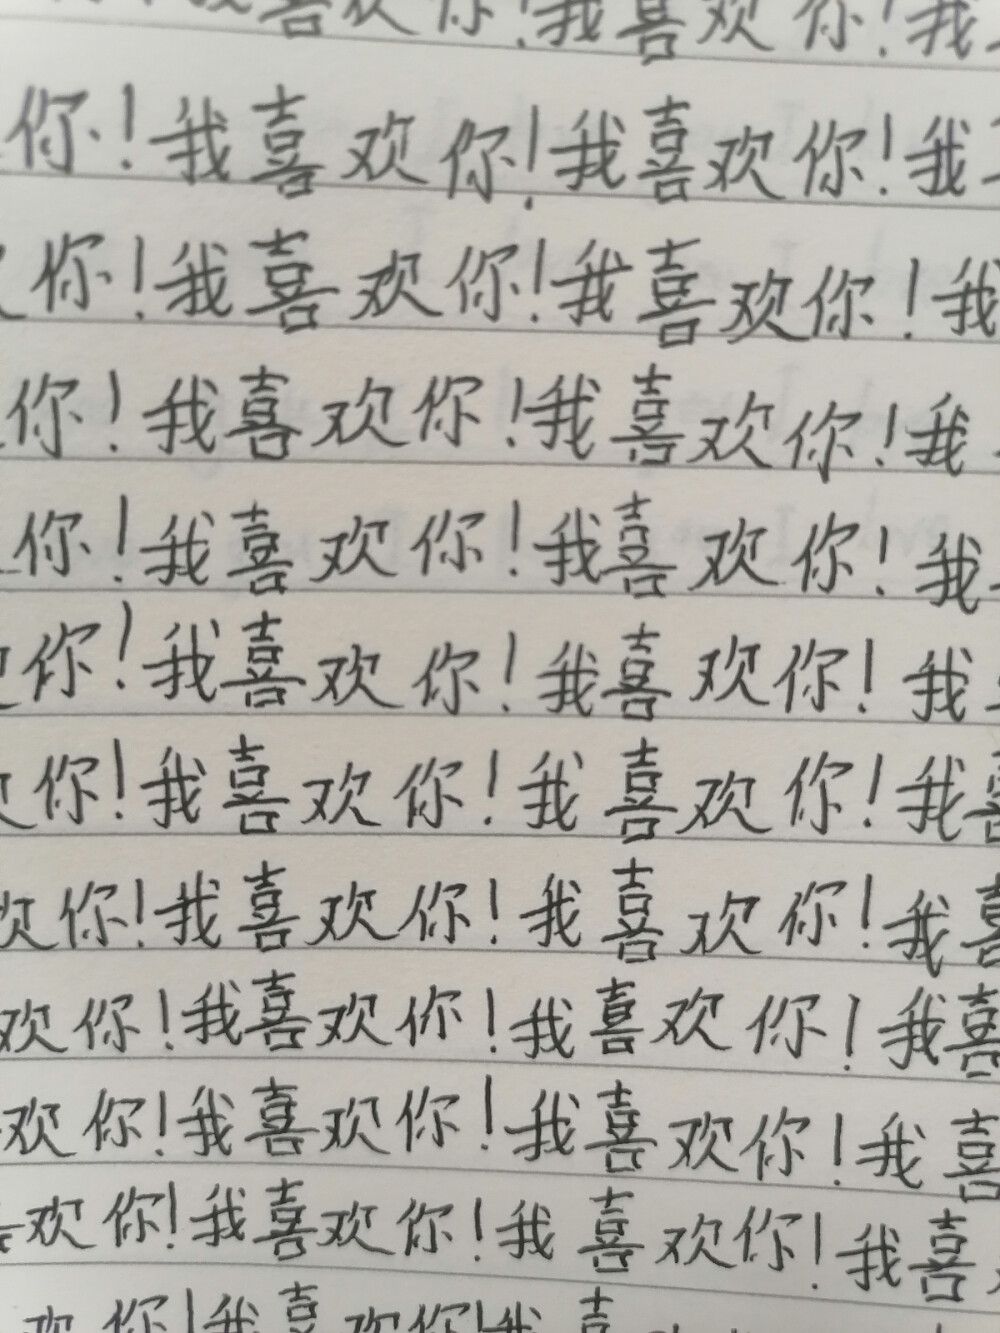 喜欢你!我喜欢你!我
你!我喜欢你!我喜欢你!我
你!我喜欢你!我喜欢你!我
你!我喜欢你!我喜欢你!我
你!我喜欢你!我喜欢你!我
你!我喜欢你!我喜欢你!我
你!我喜欢你!我喜欢你!我喜
欢你!我喜欢你!我喜欢你!我喜
欢你!我喜欢你!我喜欢你!我喜
欢你!我喜欢你!我喜欢你!我喜
欢你!我喜欢你!我喜欢你!我喜
欢你!我喜欢你!我喜